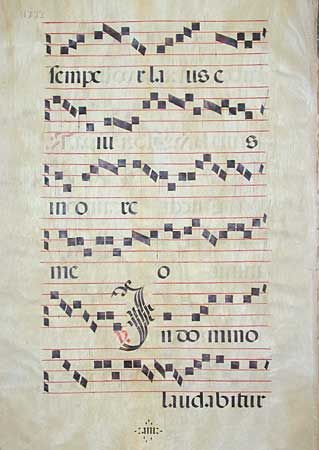 sempe r la us e
iu s
in o re
me o
℣. In do mino
laudabitur